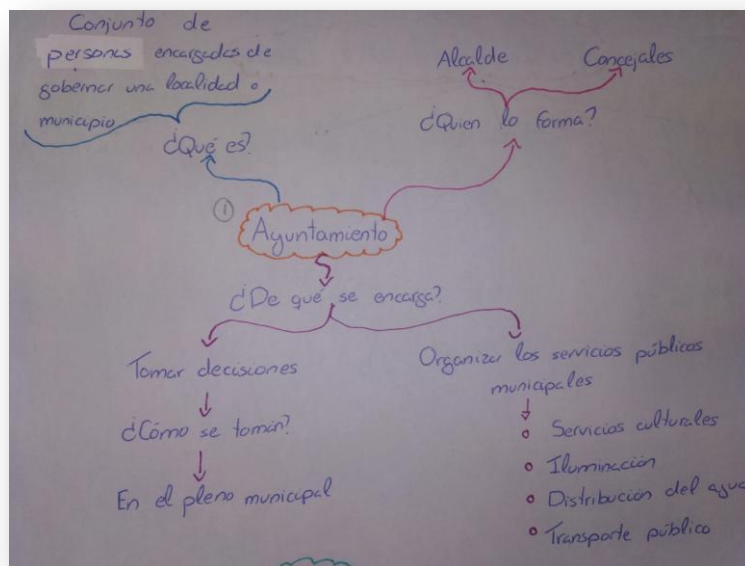 Conjunto de
personas encargadas de
gobernar una localidad o
municipio
¿Qué es?
Alcalde
Concejales
¿Quien lo forma?
1
Ayuntamiento
¿De qué se encarga?
Tomar decisiones
¿Cómo se toman?
En el pleno municipal
Organizar los servicios públicos
municipales
Servicios culturales
Iluminación
Distribución del agua
Transporte público